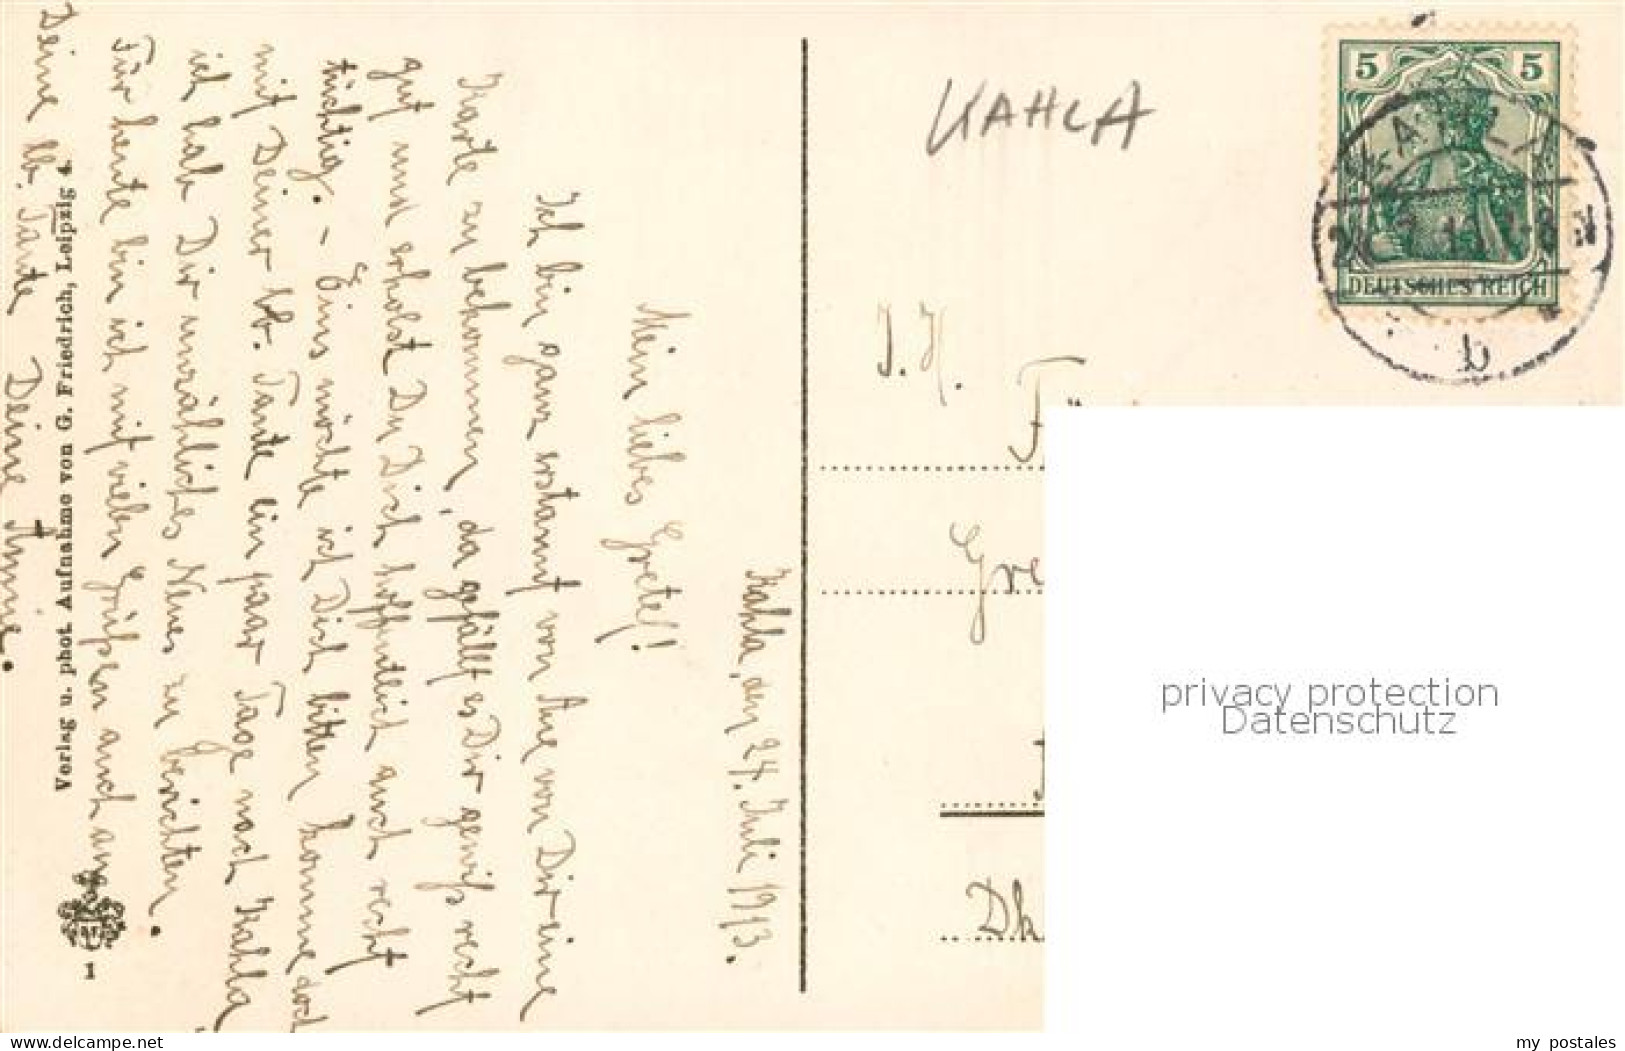 Kahla, den 24. Juli 1913.
Mein liebes Gretel!
Ich bin ganz erstaunt von Aue von Dir eine
Karte zu bekommen, da gefällt es Dir gewiß recht
gut und erholst Du Dich hoffentlich auch recht
tüchtig. – Eins möchte ich Dich bitten komme doch
mit Deiner lb. Tante ein paar Tage nach Kahla,
ich hab Dir unzähliches Neues zu berichten.
Für heute bin ich mit vielen Grüßen auch an
Deine lb. Tante Deine Annie.
Verlag u. phot. Aufnahme von G. Friedrich, Leipzig 4.
1
KAHLA
5 5
DEUTSCHES REICH
KAHLA
24. 7. 13. 7-8 N
b
J. H.
Gre
Dh
privacy protection
Datenschutz
www.delcampe.net
my_postales